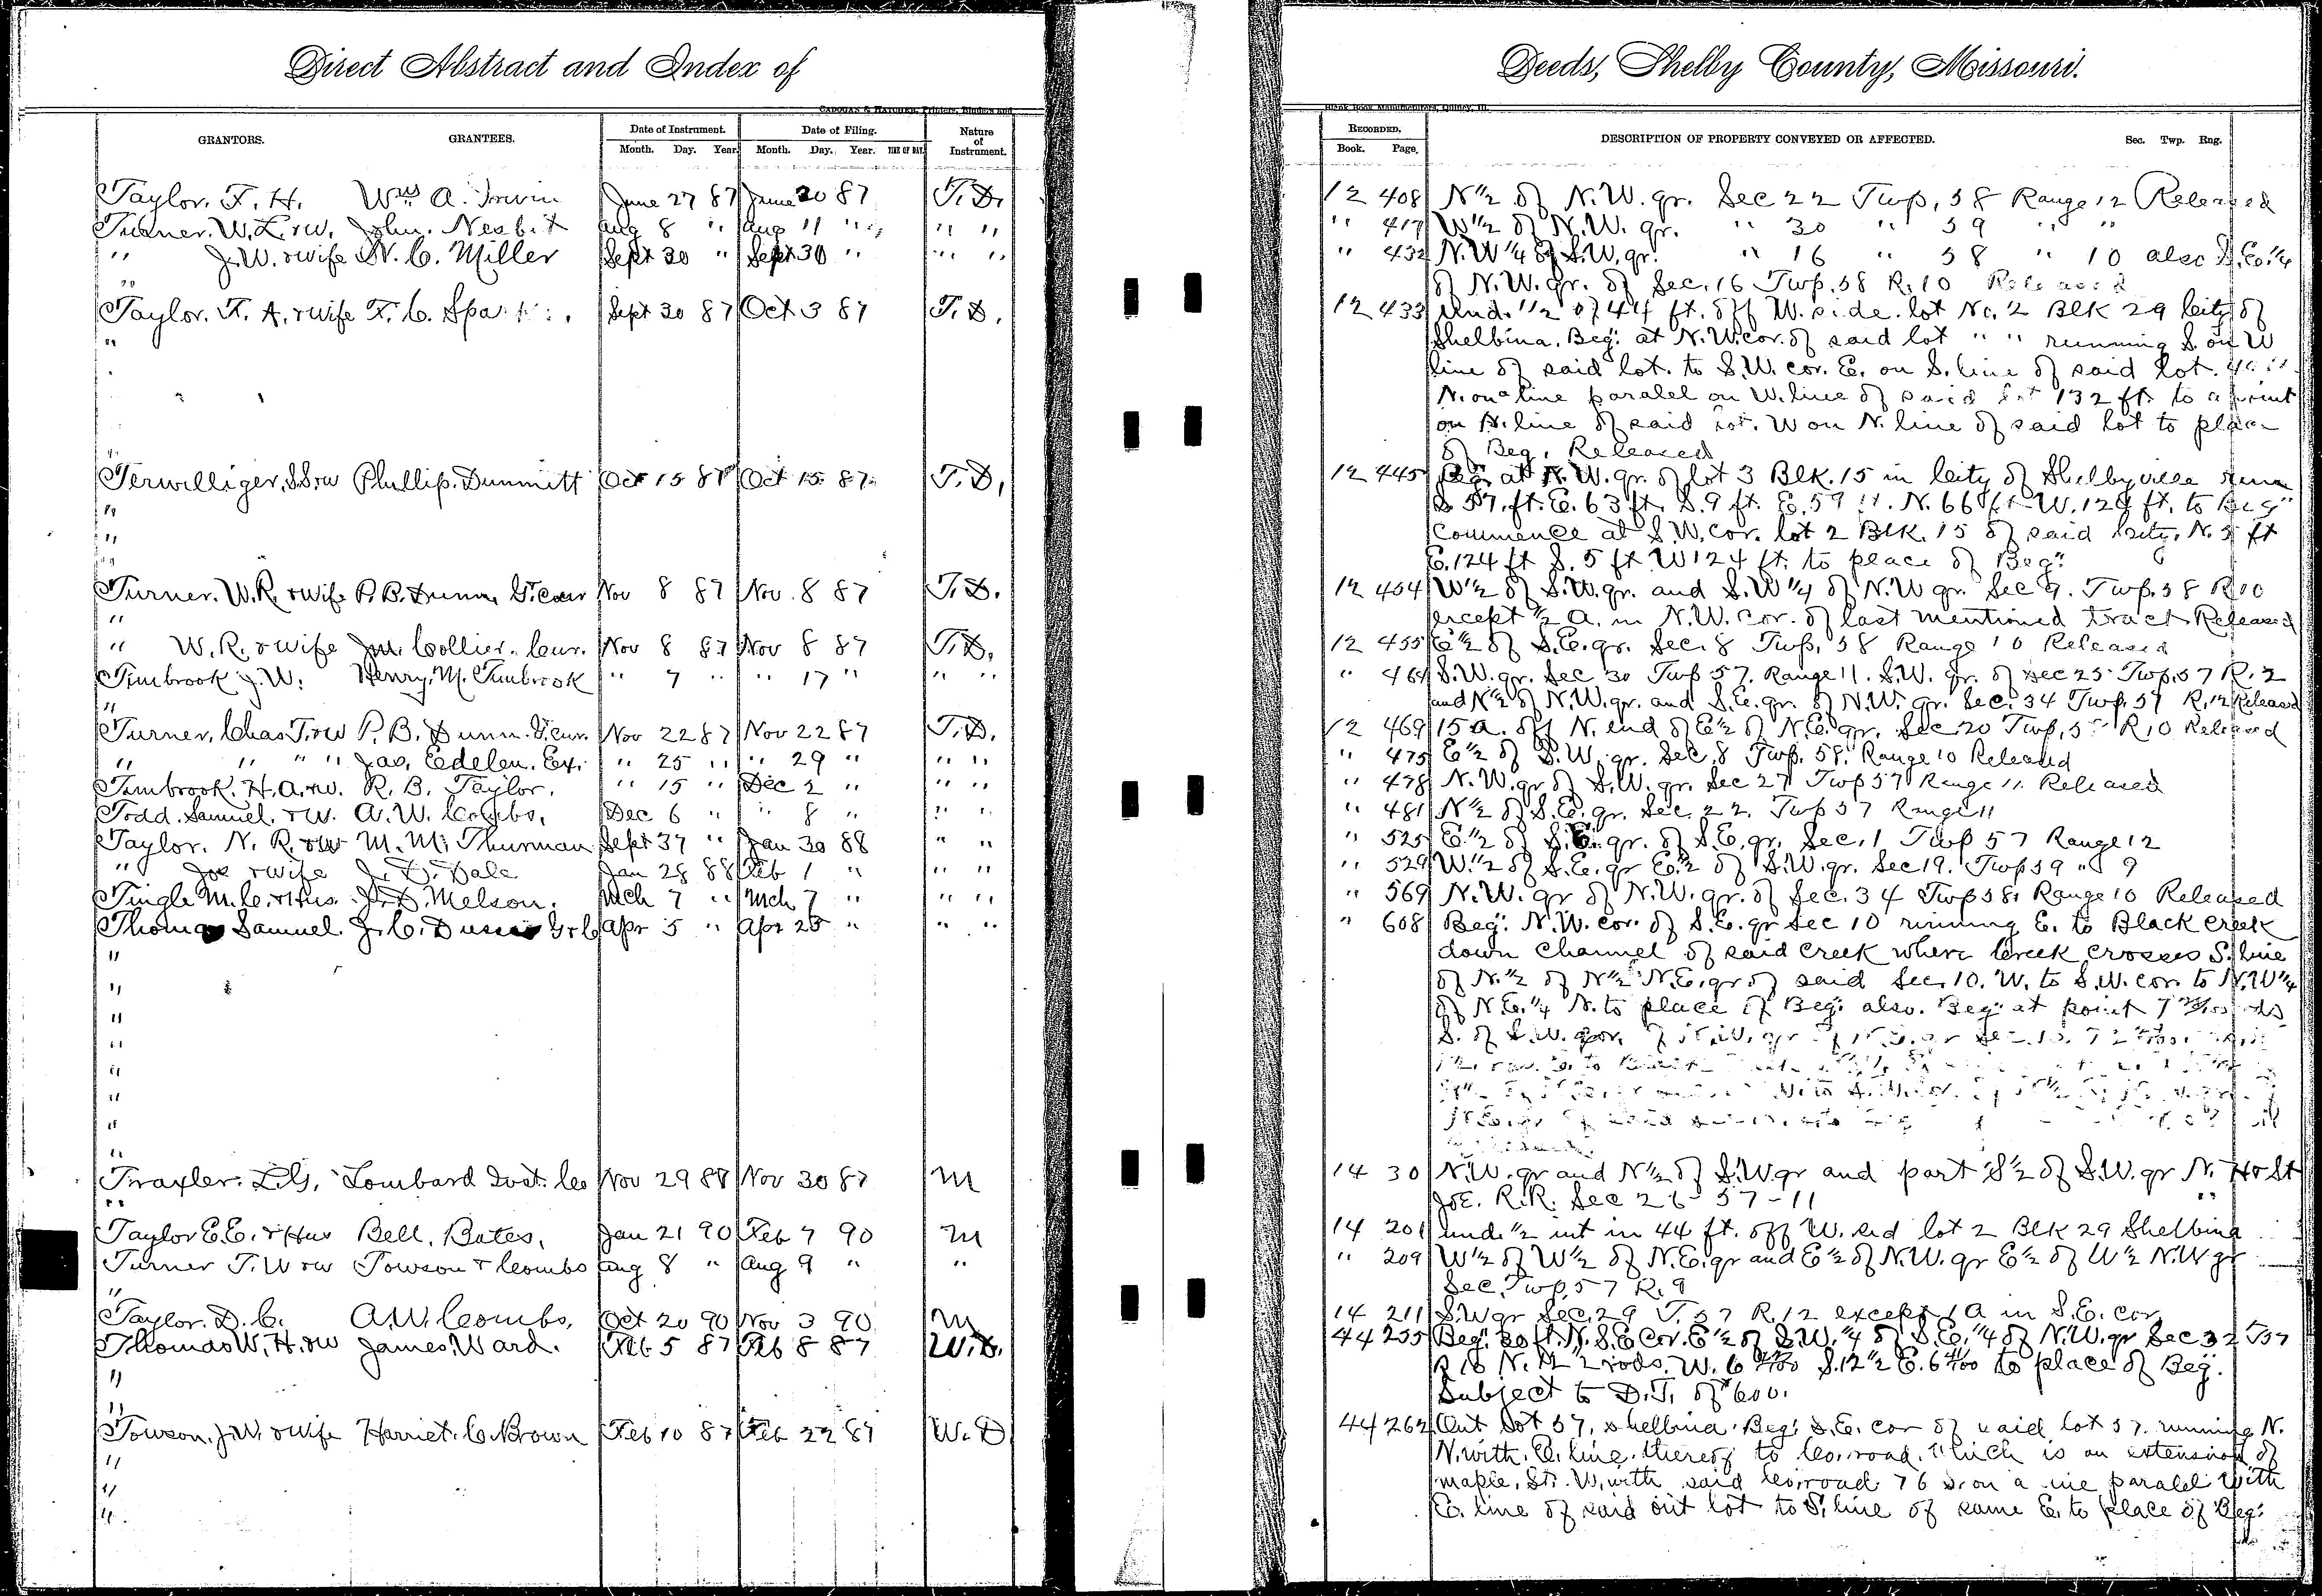 Direct Abstract and Index of
Deeds, Shelby County, Missouri.
CADOGAN & HATCHER, Printers, Binders and
Blank Book Manufacturers, Quincy, Ill.
GRANTORS. GRANTEES. Date of Instrument. Date of Filing. Nature of Instrument.
Month. Day. Year. Month. Day. Year. TIME OF DAY.
RECORDED, DESCRIPTION OF PROPERTY CONVEYED OR AFFECTED. Sec. Twp. Rng.
Book. Page.
Taylor. F. H. Wm A. Irwin June 27 87 June 30 87 T.D. 12 408 N 1/2 of N.W. qr. Sec 22 Twp. 58 Range 12 Released
Turner. W.L. & w. John. Nesbit Aug 8 " Aug 11 " " " " 417 W 1/2 of N.W. qr. " 30 " 59 " "
" J.W. & wife N. C. Miller Sept 30 " Sept 30 " " " " 432 N.W 1/4 of S.W. qr. " 16 " 58 " 10 also S.E. 1/4
" of N.W. qr. of Sec. 16 Twp. 58 R. 10 Released
Taylor. F. A. & wife F. C. Sept 30 87 Oct 3 87 T.D. 12 433 Und. 1/2 of 44 ft. off W. side. lot No. 2 Blk 29 City of
" Shelbina. Beg. at N.W. cor. of said lot " " running S. on W
line of said lot. to S.W. cor. E. on S. line of said lot.
N. on a line paralel on W. line of said lot 132 ft. to a point
on N. line of said lot. W on N. line of said lot to place
" of Beg. Released
Terwilliger, S.S. & w Phillip. Dunmitt Oct 15 87 Oct 15 87 T.D. 12 445 Beg. at N.W. qr. of lot 3 Blk. 15 in City of Shelbyville
" S. 57. ft. E. 63 ft. S. 9 ft. E. 59 N. 66 ft W. 124 ft. to Beg"
" Commence at S.W. cor. lot 2 Blk. 15 of said City. N. 5 ft
" E. 124 ft S. 5 ft W 124 ft. to place of Beg.
Turner. W.R. & wife P. B. Dunn, G. cur Nov 8 87 Nov. 8 87 T.D. 12 454 W 1/2 of S.W. qr. and S.W 1/4 of N.W qr. Sec 9. Twp. 58 R 10
" except 1/2 A. in N.W. cor. of last mentioned tract Released
" W. R. & wife Jno. Collier. Cur. Nov 8 87 Nov 8 87 T.D. 12 455 E 1/2 of S.E. qr. Sec. 8 Twp. 58 Range 10 Released
Timbrook J.W. Henry. M. Timbrook " 7 " " 17 " " " " 464 S.W. qr. Sec 30 Twp 57. Range 11. S.W. qr. of Sec 25 Twp. 57 R. 2
" and N 1/2 of N.W. qr. and S.E. qr. of N.W. qr. Sec. 34 Twp. 57 R. 12 Released
Turner, Chas T. & w P. B. Dunn. G. cur. Nov 22 87 Nov 22 87 T.D. 12 469 15 a. off N. end of E 1/2 of N.E. qr. Sec. 20 Twp. R 10 Released
" " " " Jas. Edelen. Ex. " 25 " " 29 " " " " 475 E 1/2 of S.W. qr. Sec. 8 Twp. 58. Range 10 Released
Timbrook. H. A. & w. R. B. Taylor. " 15 " Dec 2 " " " " 478 N.W. qr of S.W. qr. Sec 27 Twp 57 Range 11. Released
Todd. Samuel. & w. A. W. Combs. Dec 6 " " 8 " " " " 481 N 1/2 of S.E. qr. Sec. 22. Twp 57 Range 11
Taylor. N. R. & w M. M. Thurman Sept 37 " Jan 30 88 " " " 525 E. 1/2 of S.E. qr. of S.E. qr. Sec. 1 Twp 57 Range 12
" Joe & wife J. D. Dale Jan 28 88 Feb 1 " " " " 529 W. 1/2 of S.E. qr E. 1/2 of S.W. qr. Sec 19. Twp 59 " 9
Tingle M. C. & Hus. J. D. Melson. Mch 7 " Mch 7 " " " " 569 N.W. qr of N.W. qr. of Sec. 34 Twp 58. Range 10 Released
Thomas Samuel. J. C. Apr 5 " Apr 25 " " " " 608 Beg. N.W. cor. of S.E. qr Sec 10 running E. to Black Creek
" down Channel of said Creek where Creek crosses S. line
" of N. 1/2 of N 1/2 N.E. qr of said Sec. 10. W. to S.W. cor. to N.W 1/4
" of N.E. 1/4 N. to place of Beg. also. Beg. at point 7
" S. of S.W. cor.
"
"
"
"
Traxler. L.G. Lombard Invt. Co Nov 29 87 Nov 30 87 M 14 30 N.W. qr and N 1/2 of S.W qr and part S 1/2 of S.W. qr N. H & St
" Joe. R.R. Sec 26 - 57 - 11 "
Taylor E.E. & Hus Bell. Bates. Jan 21 90 Feb 7 90 M 14 201 und. 1/2 int in 44 ft. off W. sid lot 2 Blk 29 Shelbina
Turner T. W & w Towson & Combs Aug 8 " Aug 9 " " " 209 W 1/2 of W 1/2 of N.E. qr and E 1/2 of N.W. qr E 1/2 of W 1/2 N.W qr
" Sec. Twp. 57 R. 9
Taylor. D. C. A.W. Combs. Oct 20 90 Nov 3 90 M 14 211 S.W qr Sec. 29 T. 57 R. 12 except 1 A in S.E. cor
Thomas W. H. & w James. Ward. Feb 5 87 Feb 8 87 W.D. 44 255 Beg. 30 ft. N. S.E Cor. E 1/2 of S.W. 1/4 of S.E. 1/4 of N.W. qr Sec 32 T 57
" R 10 N. 12 1/2 rods. W. 6 S. 12 1/2 E. 6 to place of Beg.
" Subject to D.T. of $600.
Towson, J.W. & wife Harriet. C. Brown Feb 10 87 Feb 22 87 W.D 44 262 Out Lot 57, Shelbina. Beg. S.E. cor of said lot 57. running N.
" N. with. E. line. thereof to Co. road. which is an extension of
" maple. St. W. with said Co. road 76 S. on a line paralel with
" E. line of said out lot to S. line of same E. to place of Beg.